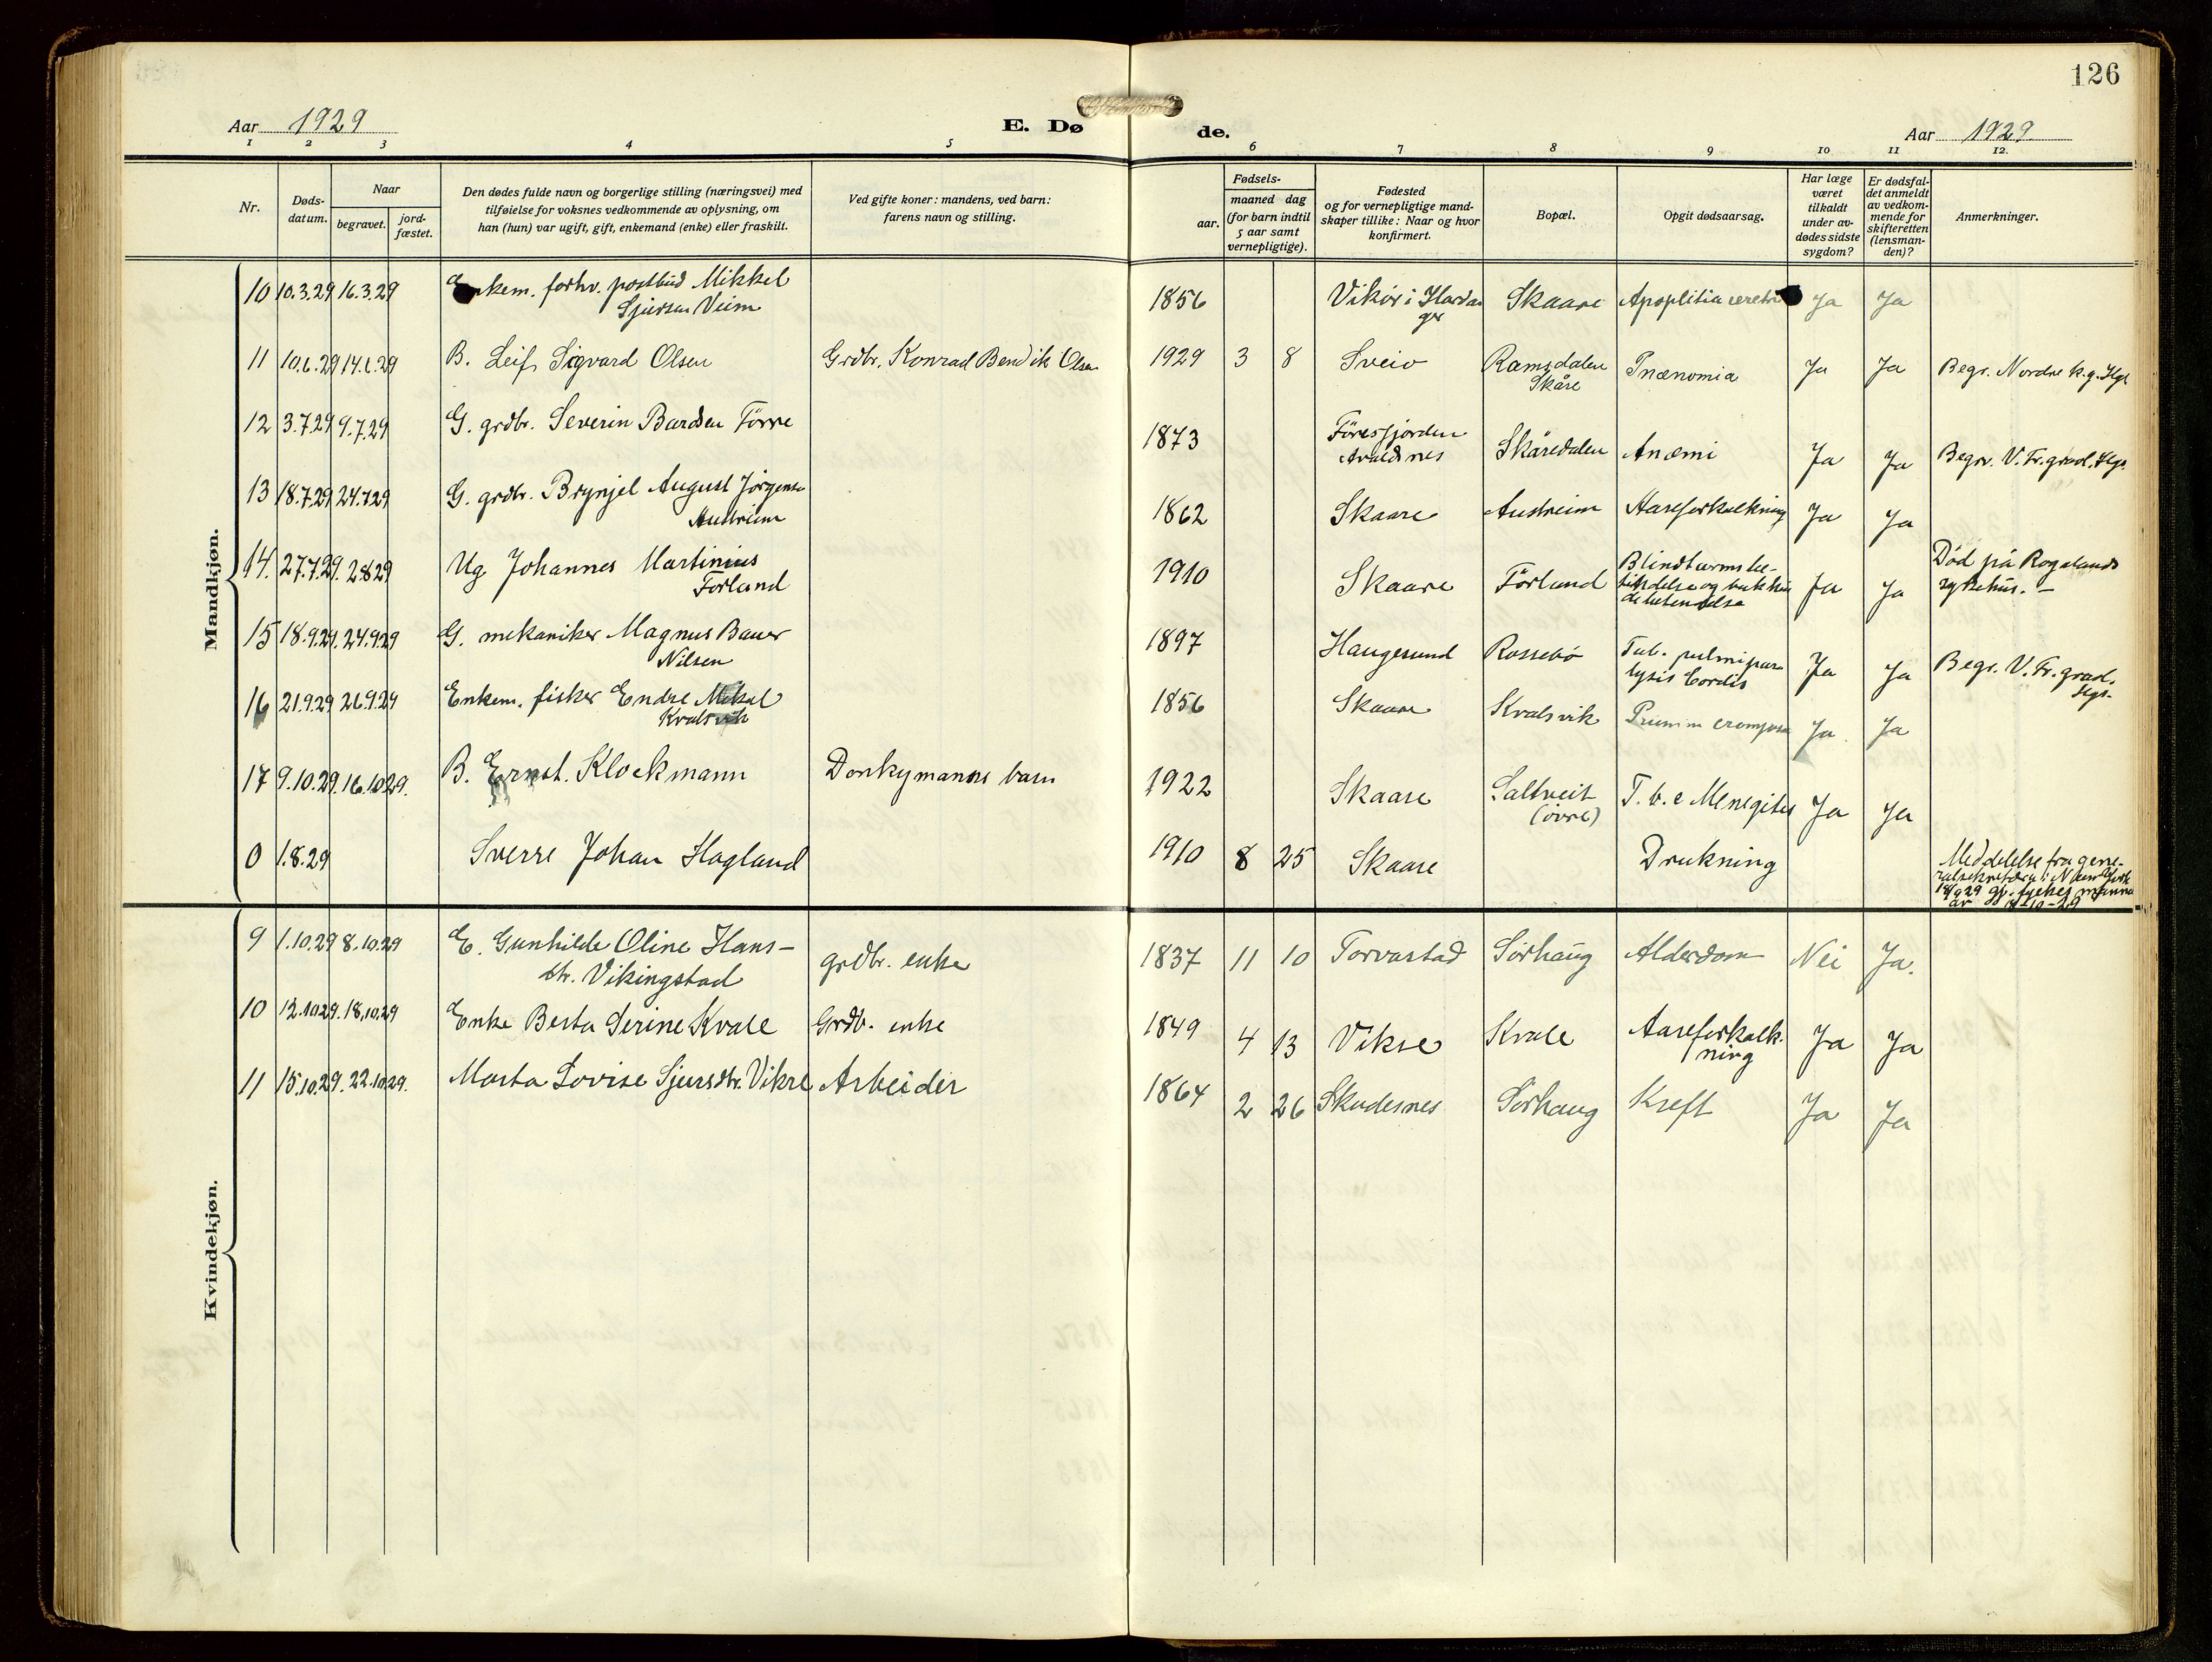 126
Aar 1929
E. Dø
de.
Aar 1929.
1 2 3 4 5 6 7 8 9 10 11 12.
Nr.
Døds-
datum.
Naar
begravet.
jord-
fæstet.
Den dødes fulde navn og borgerlige stilling (næringsvei) med
tilføielse for voksnes vedkommende av oplysning, om
han (hun) var ugift, gift, enkemand (enke) eller fraskilt.
Ved gifte koner: mandens, ved barn:
farens navn og stilling.
Fødsels-
aar.
maaned dag
(for barn indtil
5 aar samt
vernepligtige).
Fødested
og for vernepligtige mand-
skaper tillike: Naar og hvor
konfirmert.
Bopæl.
Opgit dødsaarsag.
Har læge
været
tilkaldt
under av-
dødes sidste
sygdom?
Er dødsfal-
det anmeldt
av vedkom-
mende for
skifteretten
(lensman-
den)?
Anmerkninger.
Mandkjøn.
10 10.3.29 16.3.29 Enkem. forhv. postbud Mikkel
Sjursen Veim
1856 Vikör i Hardan
ger
Skaare Apoplitia Ja Ja
11 10.6.29 14.6.29 B. Leif Sigvard Olsen Grdbr. Konrad Bendik Olsen 1929 3 8 Sveio Ramsdalen
Skåre
Pnænomia Ja Ja Begr. Nordre k.g. Hgs
12 3.7.29 9.7.29 G. grdbr. Severin Bardsen Förre 1873 Föresfjorden
Avaldsnes
Skåredalen Anæmi Ja Ja Begr. V. Fr. grad. Hgs.
13 18.7.29 24.7.29 G. grdbr. Brynjel August Jørgensen
Austreim
1862 Skaare Austreim Aareforkalkning Ja Ja
14. 27.7.29. 2.8.29 Ug Johannes Martinius
Førland
1910 Skaare Førland Blindtarmsbe-
tendelse og bukhin
debetendelse
Ja Ja Död på Rogalands
sykehus. -
15 18.9.29. 24.9.29 G. mekaniker Magnus Bauer
Nilsen
1897 Haugesund Rossebö Tub. pulm. para
lysis Cordis
Ja Ja Begr. V. Fr. grad.
Hgs.
16 21.9.29 26.9.29 Enkem. fisker Endre Mikal
Kvalsvik
1856 Skaare Kvalsvik Ja Ja
17 9.10.29. 16.10.29. B. Ernst. Klockmann Donkymanns barn 1922 Skaare Saltveit
(övre)
T. b. c Menegites Ja Ja
0 1.8.29 Sverre Johan Hagland 1910 8 25 Skaare Drukning Meddelelse fra gene-
ralsekretæren i New York
18/9 29
Kvindekjøn.
9 1.10.29 8.10.29 E. Gunhilde Oline Hans-
dtr. Vikingstad
grdbr. enke 1837 11 10 Torvastad Sørhaug Alderdom Nei Ja.
10 12.10.29. 18.10.29 Enke Berta Serine Kvale Grdb. enke 1849 4 13 Vikse Kvale Aareforkalk-
ning
Ja Ja
11 15.10.29. 22.10.29. Marta Lovise Sjursdtr. Vikre Arbeider 1864 2 26 Skudesnes Sørhaug Kreft Ja Ja